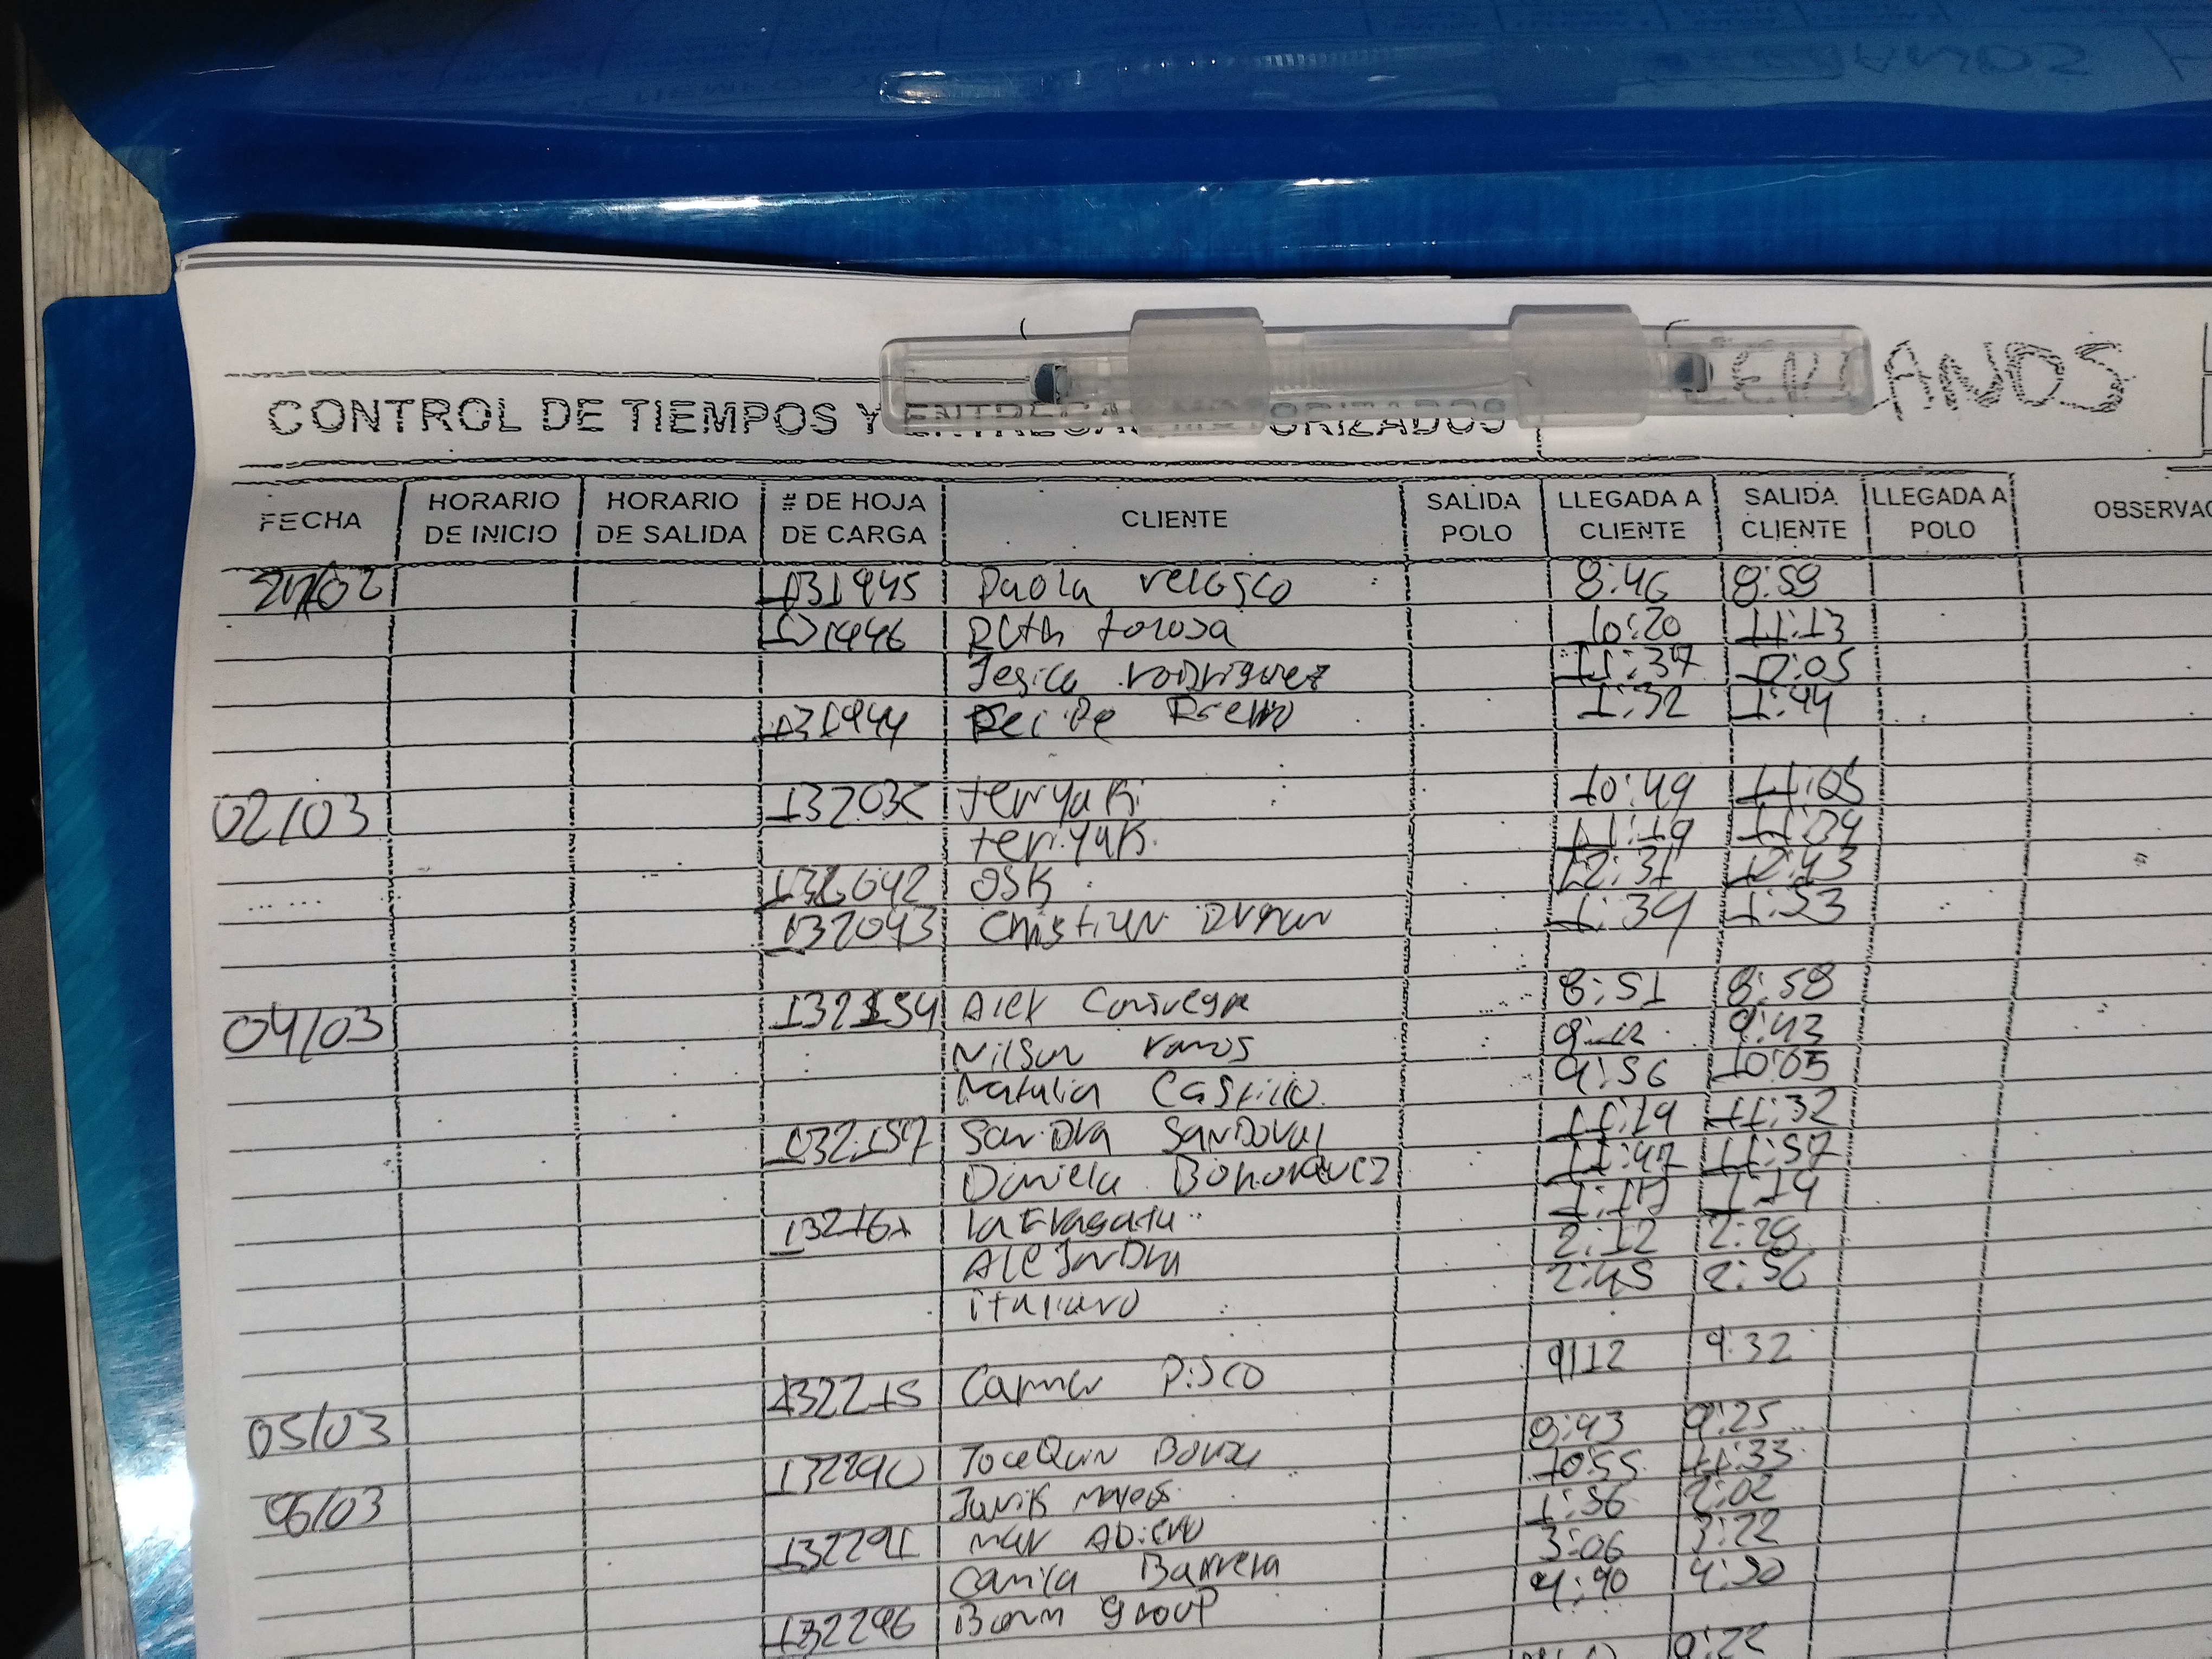 CONTROL DE TIEMPOS Y ENTREGAS MOTORIZADOS
FECHA HORARIO DE INICIO HORARIO DE SALIDA # DE HOJA DE CARGA CLIENTE SALIDA POLO LLEGADA A CLIENTE SALIDA CLIENTE LLEGADA A POLO OBSERVAC
131945 Paola velasco 8:46 8:59
131946 Ruth tolosa 10:20 11:13
Jesica rodriguez 11:37 12:05
131944 Felipe 1:32 1:44
02/03 teriyaki 10:49 11:05
teriyak. 11:19
OSK 12:31 12:43
132043 Christian 1:39 1:53
04/03 132154 Alex 8:51 8:58
Nilson ramos 9:43
Natalia Castillo. 9:56 10:05
132157 Sandra SANDOVAL 11:19 11:32
Daniela Bohorquez 11:47 11:57
132161 la Fragata 1:19
AleJanDra 2:12 2:28
italiano 2:45 2:56
05/03 132215 Carmen Pisco 9:12 9:32
06/03 132290 9:25
10:55 11:33
132291 mar Abierto 1:56 2:02
Camila Barrera 3:06 3:22
132296 group 4:30
9:22